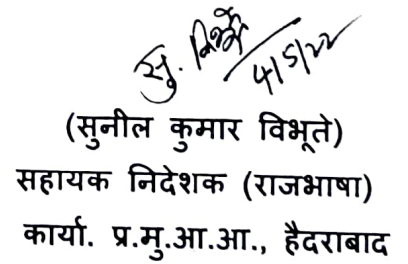 सु. विभूते
4/5/22
(सुनील कुमार विभूते)
सहायक निदेशक (राजभाषा)
कार्या. प्र.मु.आ.आ., हैदराबाद